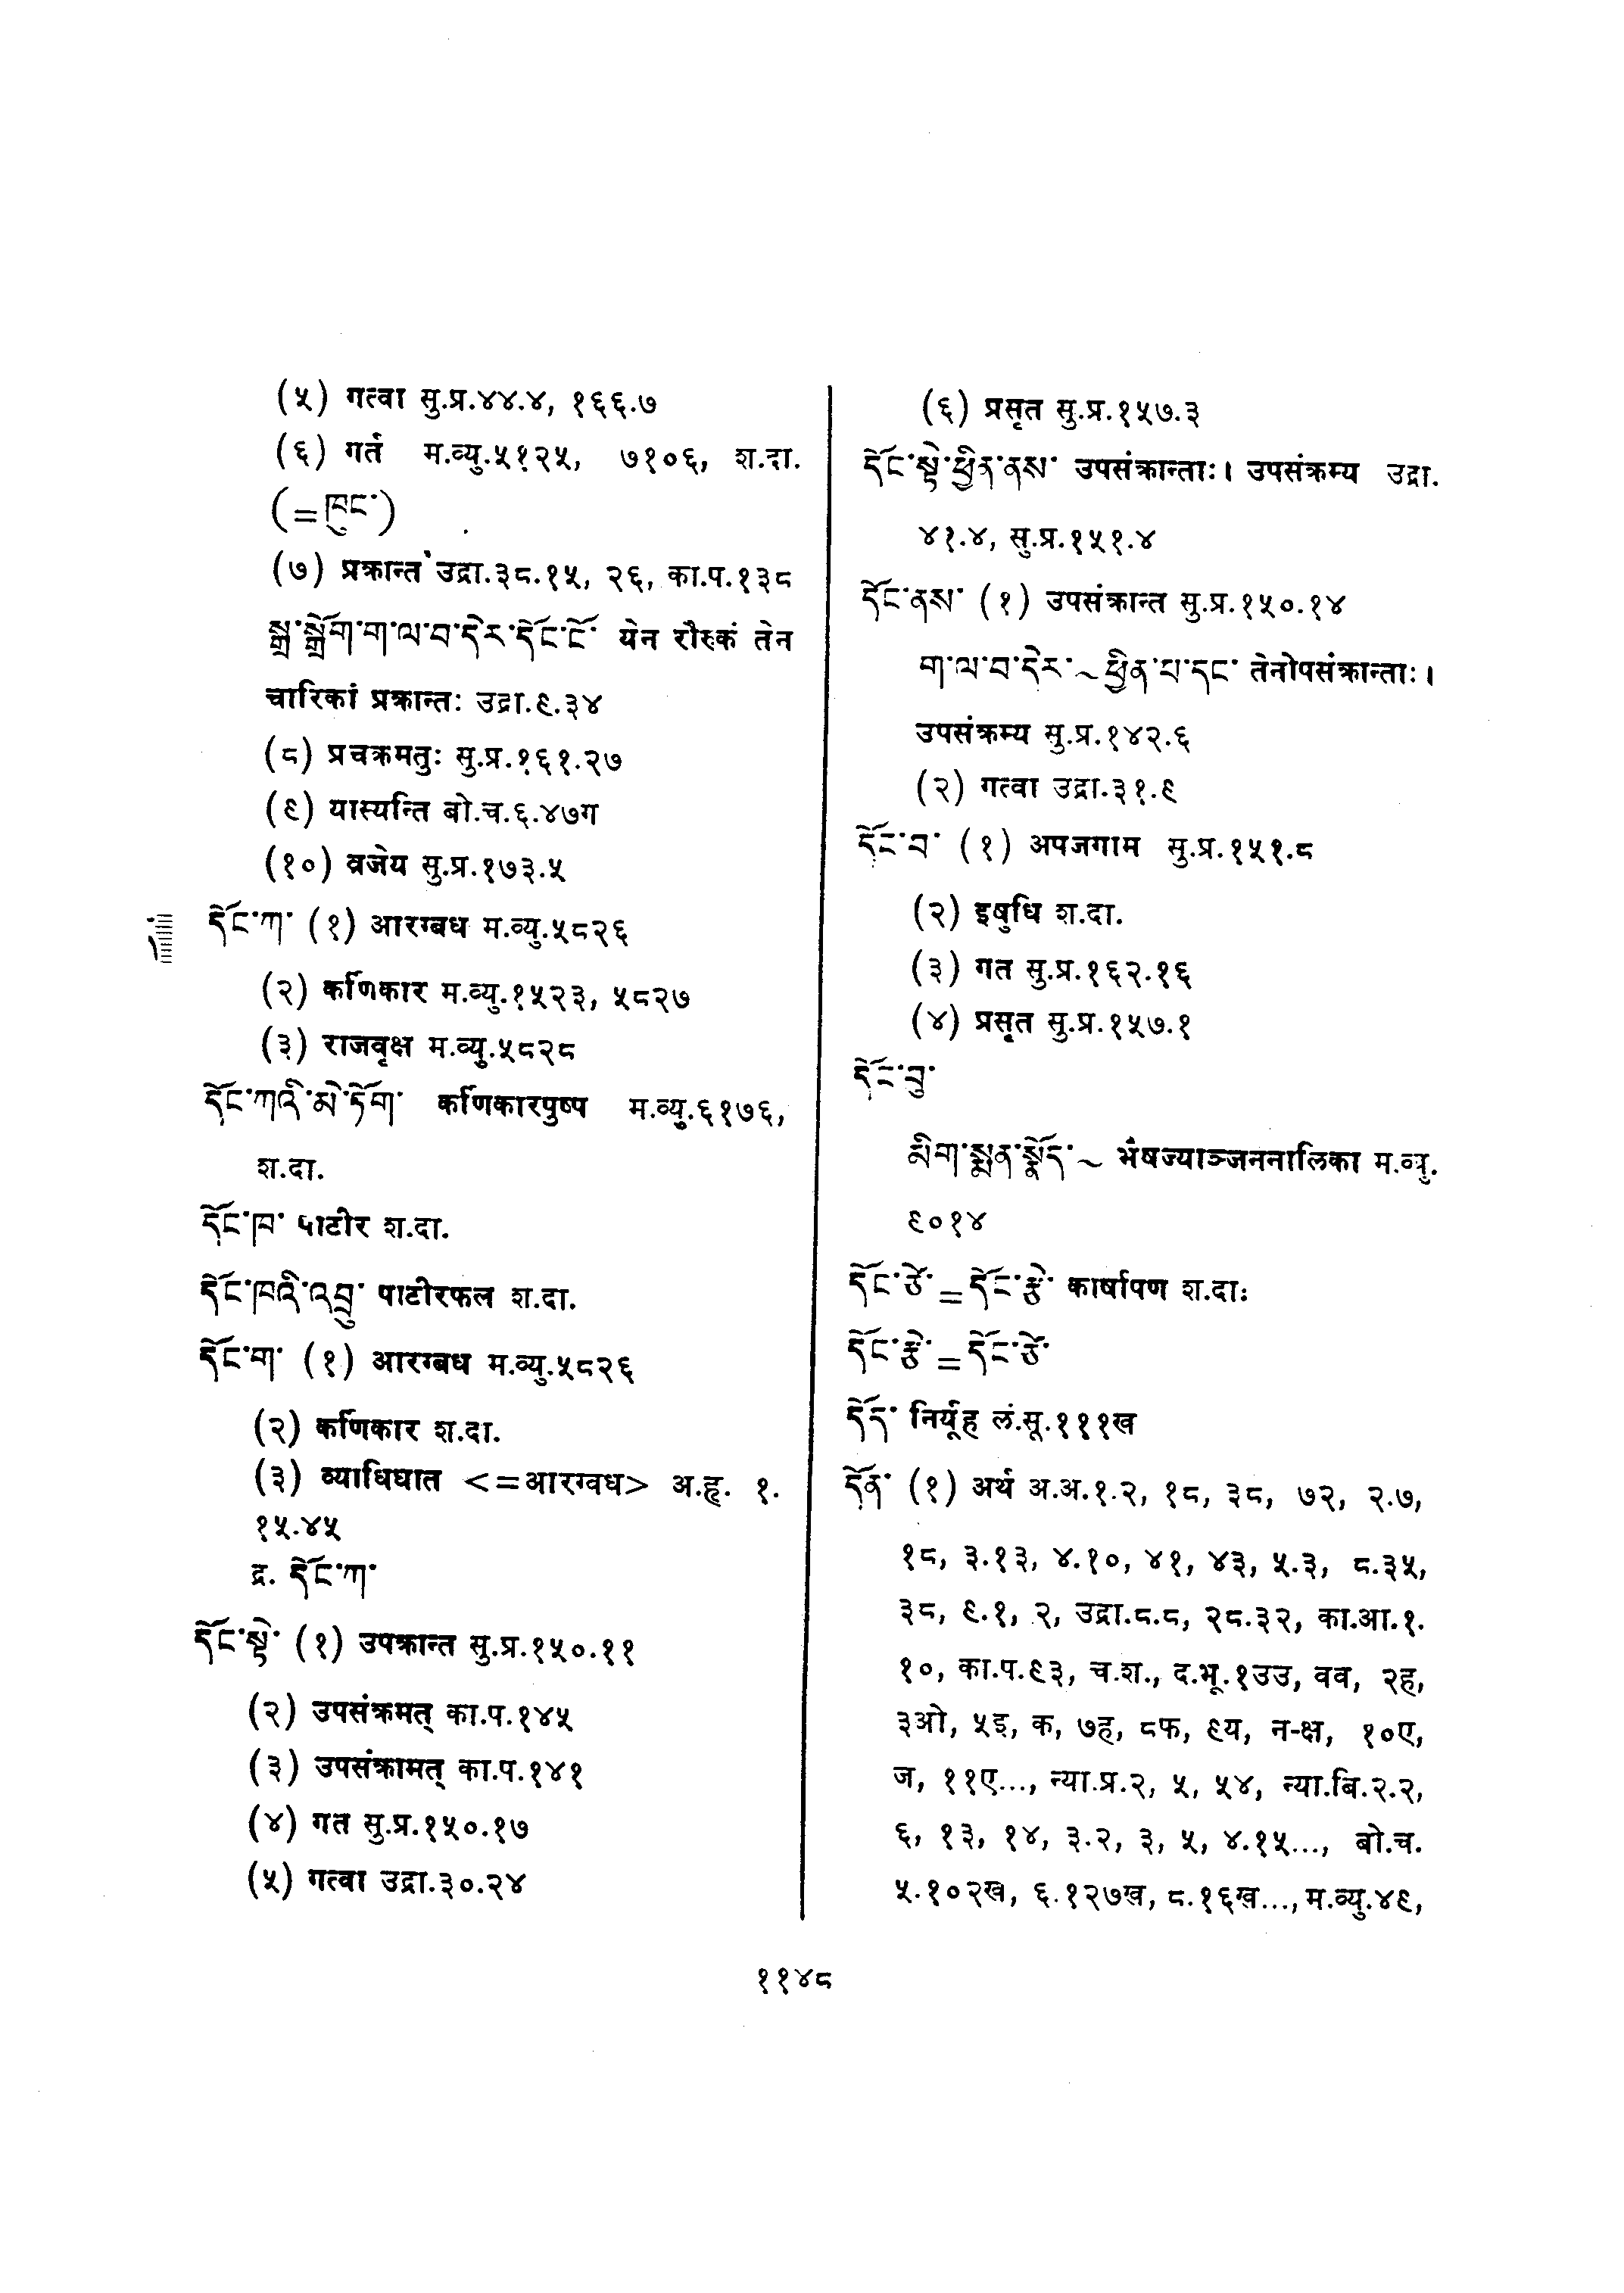 (५) गत्वा सु.प्र.४४.४, १६६.७
(६) गर्त म.व्यु.५१२५, ७१०६, श.दा.
(=ཁུང་)
(७) प्रक्रान्त उद्रा.३८.१५, २६, का.प.१३८
སྒྲ་སྒྲོག་ག་ལ་བ་དེར་དོང་ངོ་ येन रौरुकं तेन
चारिकां प्रक्रान्तः उद्रा.९.३४
(८) प्रचक्रमतुः सु.प्र.१६१.२७
(९) यास्यन्ति बो.च.६.४७ग
(१०) व्रजेय सु.प्र.१७३.५
དོང་ཀ་ (१) आरग्बध म.व्यु.५८२६
(२) कर्णिकार म.व्यु.१५२३, ५८२७
(३) राजवृक्ष म.व्यु.५८२८
དོང་ཀའི་མེ་ཏོག་ कर्णिकारपुष्प म.व्यु.६१७६,
श.दा.
དོང་ཁ་ पाटीर श.दा.
དོང་ཁའི་འབྲུ་ पाटीरफल श.दा.
དོང་ག་ (१) आरग्बध म.व्यु.५८२६
(२) कर्णिकार श.दा.
(३) व्याधिघात <=आरग्वध> अ.हृ. १.
१५.४५
द्र. དོང་ཀ་
དོང་སྟེ་ (१) उपक्रान्त सु.प्र.१५०.११
(२) उपसंक्रमत् का.प.१४५
(३) उपसंक्रामत् का.प.१४१
(४) गत सु.प्र.१५०.१७
(५) गत्वा उद्रा.३०.२४
(६) प्रसृत सु.प्र.१५७.३
དོང་སྟེ་ཕྱིན་ནས་ उपसंक्रान्ताः। उपसंक्रम्य उद्रा.
४१.४, सु.प्र.१५१.४
དོང་ནས་ (१) उपसंक्रान्त सु.प्र.१५०.१४
ག་ལ་བ་དེར་~ཕྱིན་པ་དང་ तेनोपसंक्रान्ताः।
उपसंक्रम्य सु.प्र.१४२.६
(२) गत्वा उद्रा.३१.९
དོང་བ་ (१) अपजगाम सु.प्र.१५१.८
(२) इषुधि श.दा.
(३) गत सु.प्र.१६२.१६
(४) प्रसृत सु.प्र.१५७.१
དོང་བུ་
མིག་སྨན་སྣོད་~ भैषज्याञ्जननालिका म.व्यु.
९०१४
དོང་ཙེ་=དོང་རྩེ་ कार्षापण श.दा.
དོང་རྩེ་=དོང་ཙེ་
དོད་ निर्यूह लं.सू.१११ख
དོན་ (१) अर्थ अ.अ.१.२, १८, ३८, ७२, २.७,
१८, ३.१३, ४.१०, ४१, ४३, ५.३, ८.३५,
३८, ९.१, २, उद्रा.८.८, २८.३२, का.आ.१.
१०, का.प.९३, च.श., द.भू.१उउ, वव, २ह,
३ओ, ५इ, क, ७ह, ८फ, ९य, न-क्ष, १०ए,
ज, ११ए..., न्या.प्र.२, ५, ५४, न्या.बि.२.२,
६, १३, १४, ३.२, ३, ५, ४.१५..., बो.च.
५.१०२ख, ६.१२७ख, ८.१६ख..., म.व्यु.४९,
११४८